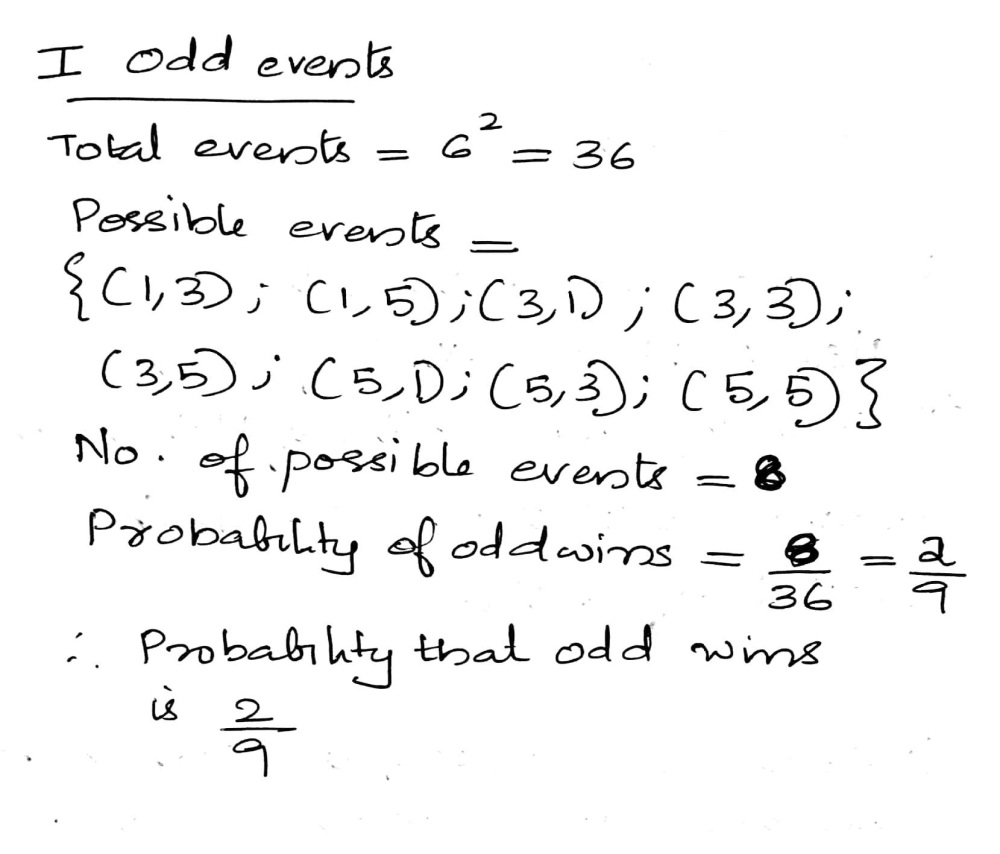 I Odd events
Total events = 6² = 36
Possible events =
{(1,3); (1,5); (3,1); (3,3);
(3,5); (5,1); (5,3); (5,5)}
No. of possible events = 8
Probability of odd wins = 8/36 = 2/9
∴ Probability that odd wins
is 2/9